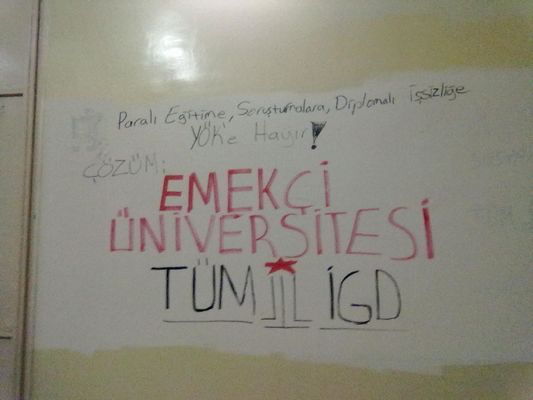 Paralı Eğitime, Soruşturmalara, Diplomalı işsizliğe
YÖK'e Hayır!
ÇÖZÜM:
EMEKÇİ
ÜNİVERSİTESİ
TÜM İGD